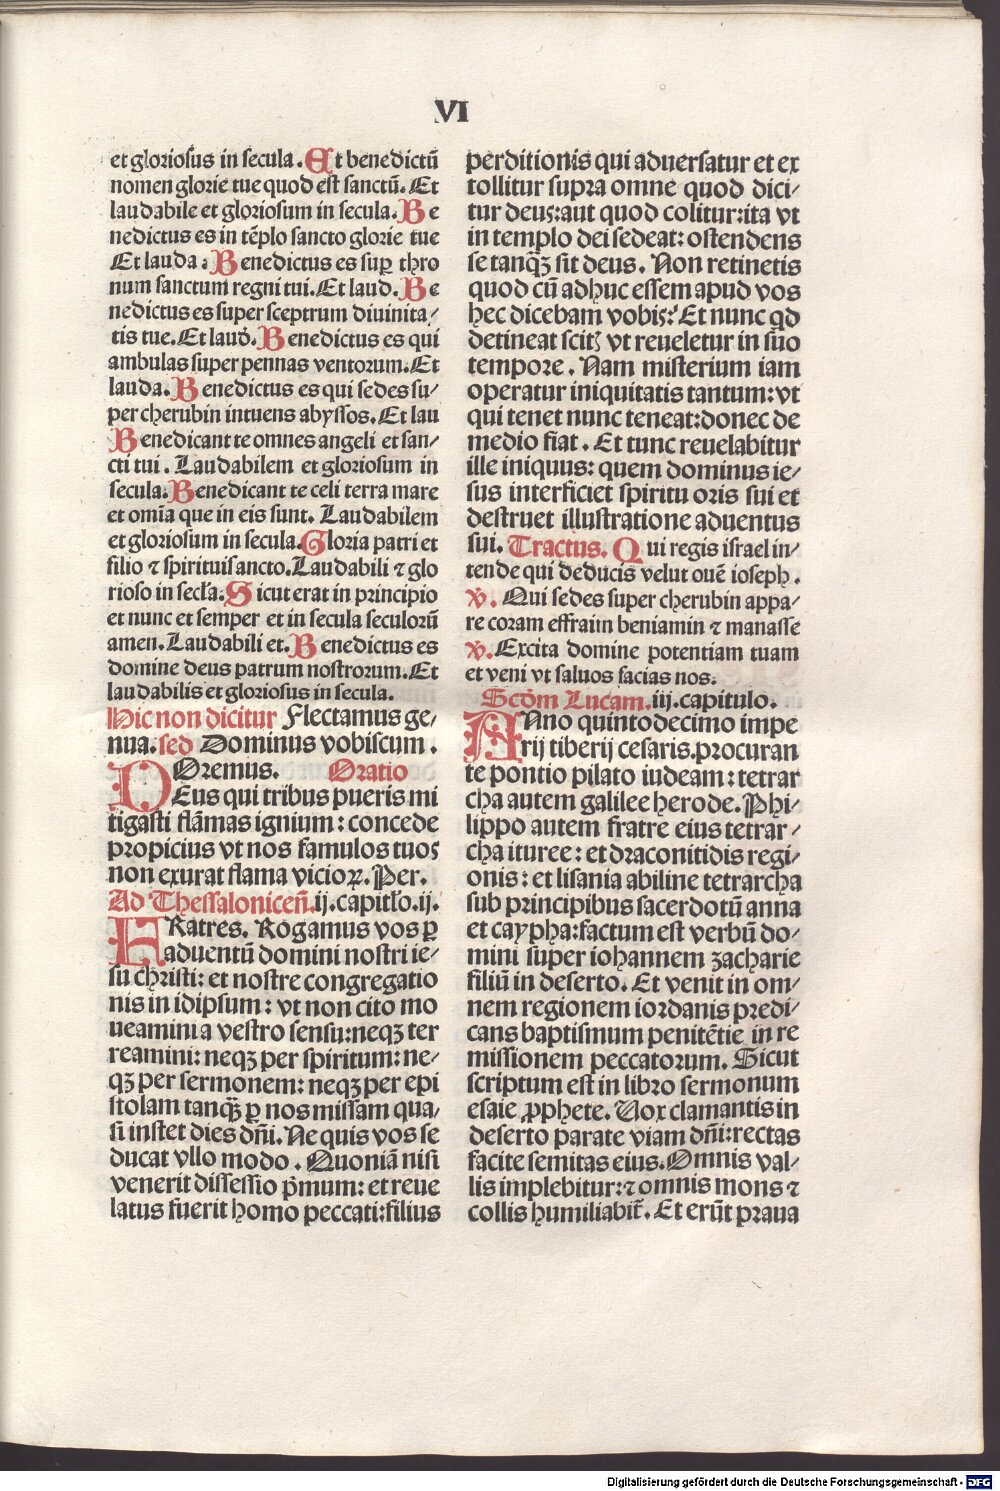 VI
et gloriosus in secula. Et benedictū
nomen glorie tue quod est sanctū. Et
laudabile et gloriosum in secula. Be
nedictus es in tēplo sancto glorie tue
Et lauda. Benedictus es suꝑ thro
num sanctum regni tui. Et laud. Be
nedictus es super sceptrum diuinita/
tis tue. Et laud. Benedictus es qui
ambulas super pennas ventorum. Et
lauda. Benedictus es qui sedes su/
per cherubin intuens abyssos. Et lau
Benedicant te omnes angeli et san/
cti tui. Laudabilem et gloriosum in
secula. Benedicant te celi terra mare
et omīa que in eis sunt. Laudabilem
et gloriosum in secula. Gloria patri et
filio ⁊ spirituisancto. Laudabili ⁊ glo
rioso in secl'a. Sicut erat in principio
et nunc et semper et in secula seculorū
amen. Laudabili et. Benedictus es
domine deus patrum nostrorum. Et
laudabilis et gloriosus in secula.
Hic non dicitur Flectamus ge/
nua. sed Dominus vobiscum.
Oremus. Oratio
DEus qui tribus pueris mi
tigasti flāmas ignium: concede
propicius vt nos famulos tuos
non exurat flama vicioꝝ. Per.
Ad Thessaloniceñ. ij. capitl'o. ij.
FRatres. Rogamus vos ꝑ
aduentū domini nostri ie/
su christi: et nostre congregatio
nis in idipsum: vt non cito mo
ueamini a vestro sensu: neqꝫ ter
reamini: neqꝫ per spiritum: ne/
qꝫ per sermonem: neqꝫ per epi
stolam tanqꝫ̄ ꝑ nos missam qua/
si instet dies dñi. Ne quis vos se
ducat vllo modo. Quoniā nisi
venerit dissessio p̄mum: et reue
latus fuerit homo peccati: filius
perditionis qui aduersatur et ex
tollitur supra omne quod dici/
tur deus: aut quod colitur: ita vt
in templo dei sedeat: ostendens
se tanqꝫ̄ sit deus. Non retinetis
quod cū adhuc essem apud vos
hec dicebam vobis: Et nunc qd
detineat scitꝭ vt reueletur in suo
tempore. Nam misterium iam
operatur iniquitatis tantum: vt
qui tenet nunc teneat: donec de
medio fiat. Et tunc reuelabitur
ille iniquus: quem dominus ie/
sus interficiet spiritu oris sui et
destruet illustratione aduentus
sui. Tractus. Qui regis israel in/
tende qui deducis velut ouē ioseph.
℣. Qui sedes super cherubin appa/
re coram effraim beniamin ⁊ manasse
℣. Excita domine potentiam tuam
et veni vt saluos facias nos.
Scdm̄ Lucam. iij. capitulo.
ANno quintodecimo impe
rij tiberij cesaris. procuran
te pontio pilato iudeam: tetrar
cha autem galilee herode. Phi/
lippo autem fratre eius tetrar/
cha ituree: et draconitidis regi/
onis: et lisania abiline tetrarcha
sub principibus sacerdotū anna
et caypha: factum est verbū do/
mini super iohannem zacharie
filiū in deserto. Et venit in om/
nem regionem iordanis predi/
cans baptismum penitētie in re
missionem peccatorum. Sicut
scriptum est in libro sermonum
esaie ꝓphete. Vox clamantis in
deserto parate viam dñi: rectas
facite semitas eius. Omnis val/
lis implebitur: ⁊ omnis mons ⁊
collis humiliabit̄. Et erūt praua
Digitalisierung gefördert durch die Deutsche Forschungsgemeinschaft - DFG